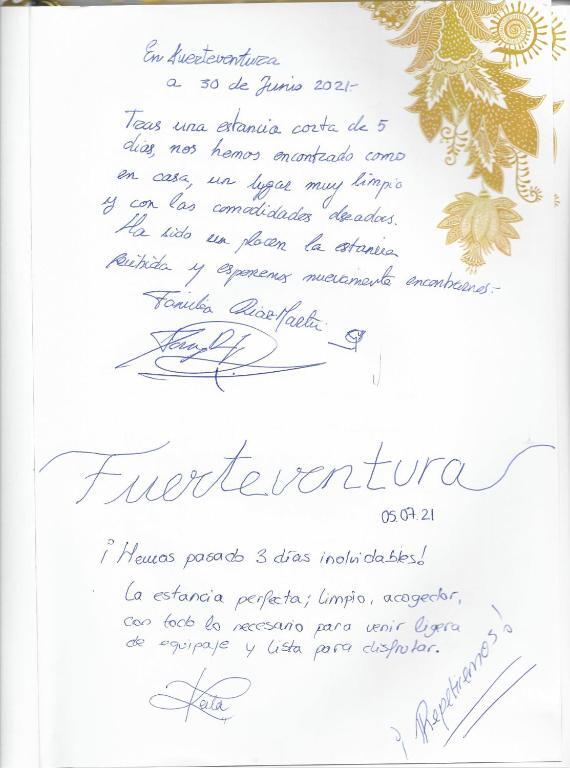 En Fuerteventura
a 30 de Junio 2021.-
Tras una estancia corta de 5
días, nos hemos encontrado como
en casa, un lugar muy limpio
y con las comodidades deseadas.
Ha sido un placer la estancia
recibida y esperemos nuevamente encontrarnos.-
Familia Díaz Martín
Fuerteventura
05.07.21
¡Hemos pasado 3 días inolvidables!
La estancia perfecta; limpio, acogedor,
con todo lo necesario para venir ligera
de equipaje y lista para disfrutar.
Keila
¡Repetiremos!